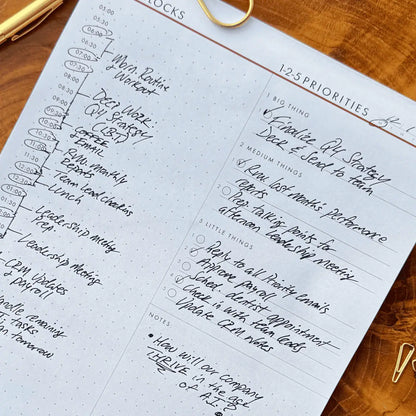 LOCKS
05:00
05:30
06:00
06:30
07:00
07:30
08:00
08:30
09:00
09:30
10:00
10:30
11:00
11:30
12:00
01:00
01:30
02:00
02:30
03:00
Morn. Routine
& Workout
Deep Work
Q4 Strategy
(CBT)
COFFEE
& EMAIL
Monthly
Reports
Team Lead Checkins
Lunch
Leadership Meeting
Prep
Leadership Meeting
CRM Updates
& Payroll
Handle remaining
tasks
Tomorrow
1-2-5 PRIORITIES
1 BIG THING
Finalize Q4 Strategy
Deck & Send to Team
2 MEDIUM THINGS
Read last month's performance
reports
Prep talking points for
afternoon leadership meeting
5 LITTLE THINGS
Reply to all Priority emails
Approve payroll
Sched. dentist appointment
Check in with team leads
Update CRM notes
NOTES
• How will our company
THRIVE in the age
of A.I.?